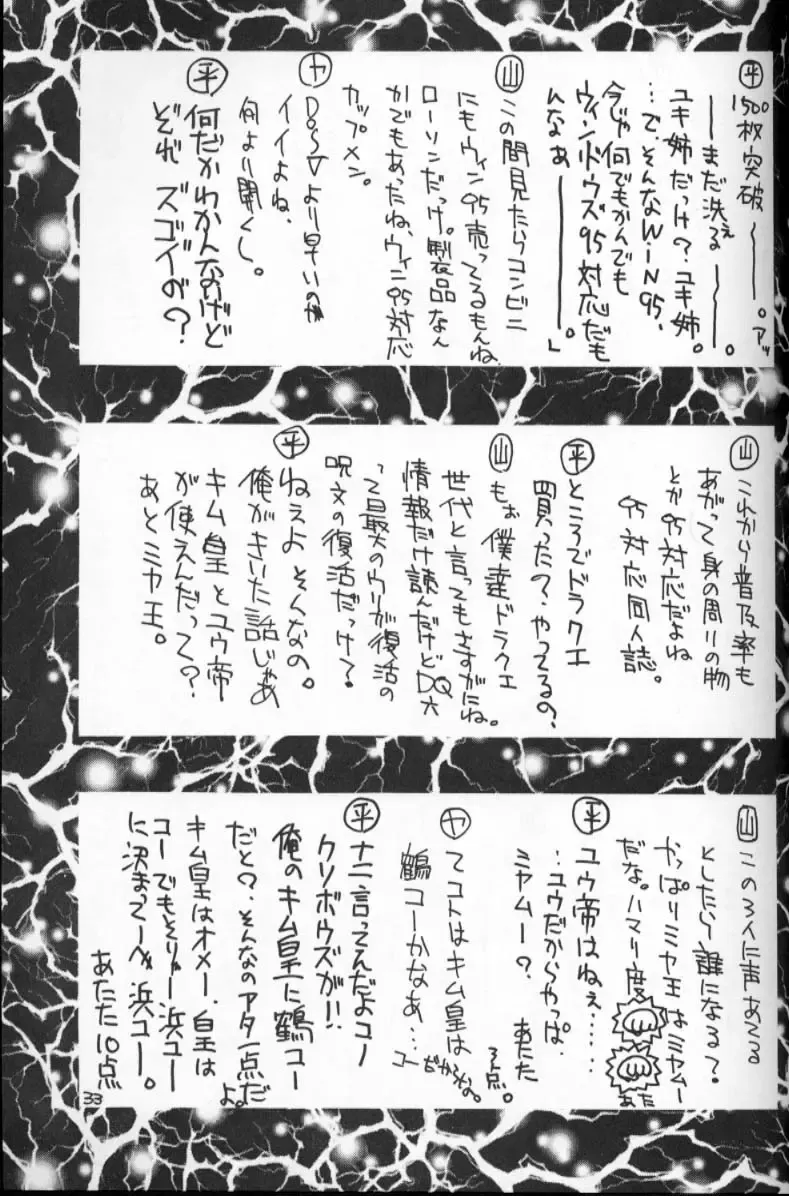 平
1500枚突破〜〜。アッ
――まだ洗える――。
ユキ姉だっけ?ユキ姉。
…で、そんなWiN95、
今じゃ何でもかんでも
ウィンドウズ95対応だも
んなぁ――――。」
山
この間見たらコンビニ
にもウィン95売ってるもんね、
ローソンだっけ。製品なん
かでもあったね、ウィン95対応
カップメン。
ヤ
DOS/Vより早いのが
イイよね、
何より聞くし。
平
何だかわかんないけど
それ スゴイの?
山
これから普及率も
あがって身の周りの物
とか95対応だよね
95対応同人誌。
平
ところでドラクエ
買ったの?やってるの?
山
もぉ僕達ドラクエ
世代と言ってもさすがにね。
情報だけ読んだけどDQ六
って最大のウリが復活の
呪文の復活だっけ?
平
ねぇよそんなの。
俺がきいた話じゃあ
キム皇とユウ帝
が使えんだって?
あとミヤ王。
山
この3人に声あてる
としたら誰になる?
やっぱりミヤ王はミヤムー
だな。ハマリ度
あた
平
ユウ帝はねぇ……
…ユウだからやっぱ
ミヤムー? あたた
3点。
ヤ
てコトはキム皇は
鶴コーかなあ…
コーだからね。
平
ナニ言ってんだよコノ
クソボウズが!!
俺のキム皇に鶴コー
だと?そんなのアタ一点だ
よ。
キム皇はオメー、皇は
コーでもそりゃー浜コー
に決まってーべ浜コー。
あたた10点
33